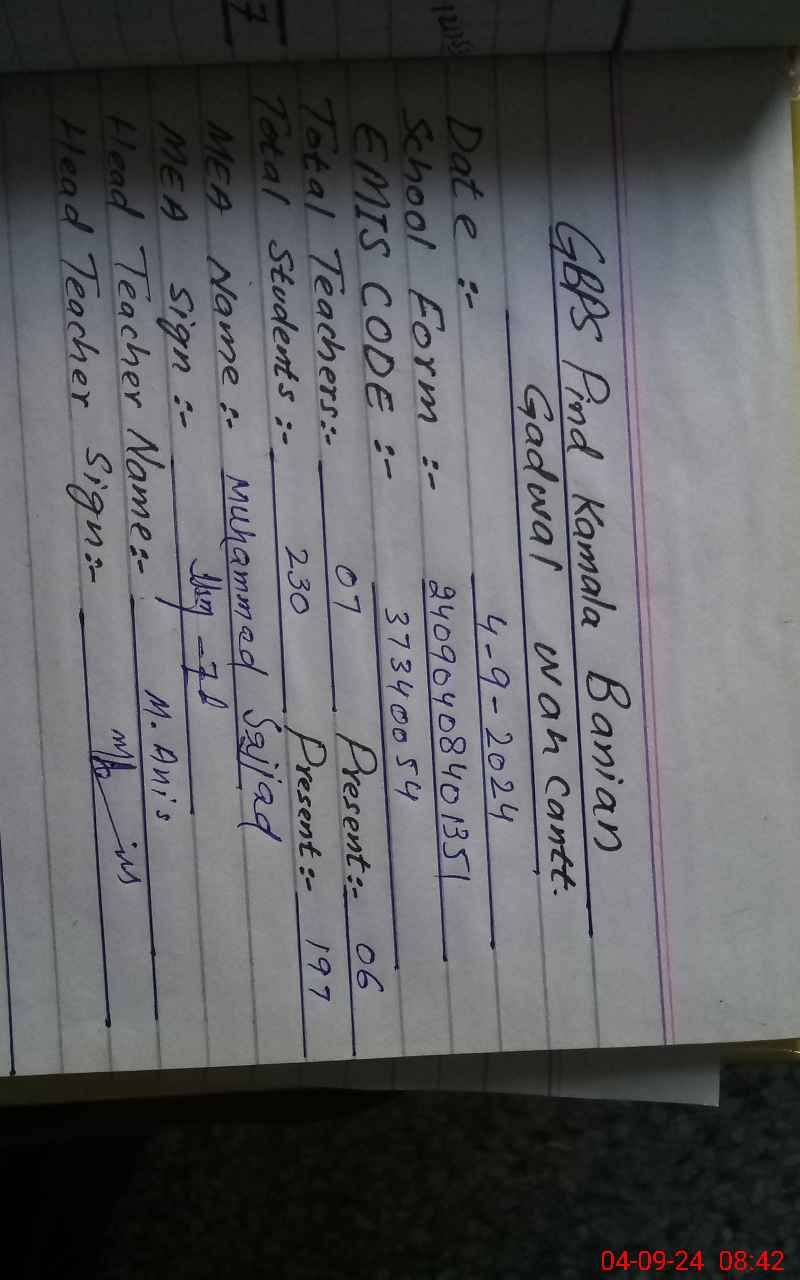 GBPS Pind Kamala Banian
Gadwal wah Cantt.
Date :- 4-9-2024
School Form :- 24090408401351
EMIS CODE :- 37340054
Total Teachers:- 07 Present:- 06
Total Students:- 230 Present:- 197
MEA Name:- Muhammad Sajjad
MEA Sign :-
Head Teacher Name:- M. Anis
Head Teacher Sign:-
7
04-09-24 08:42